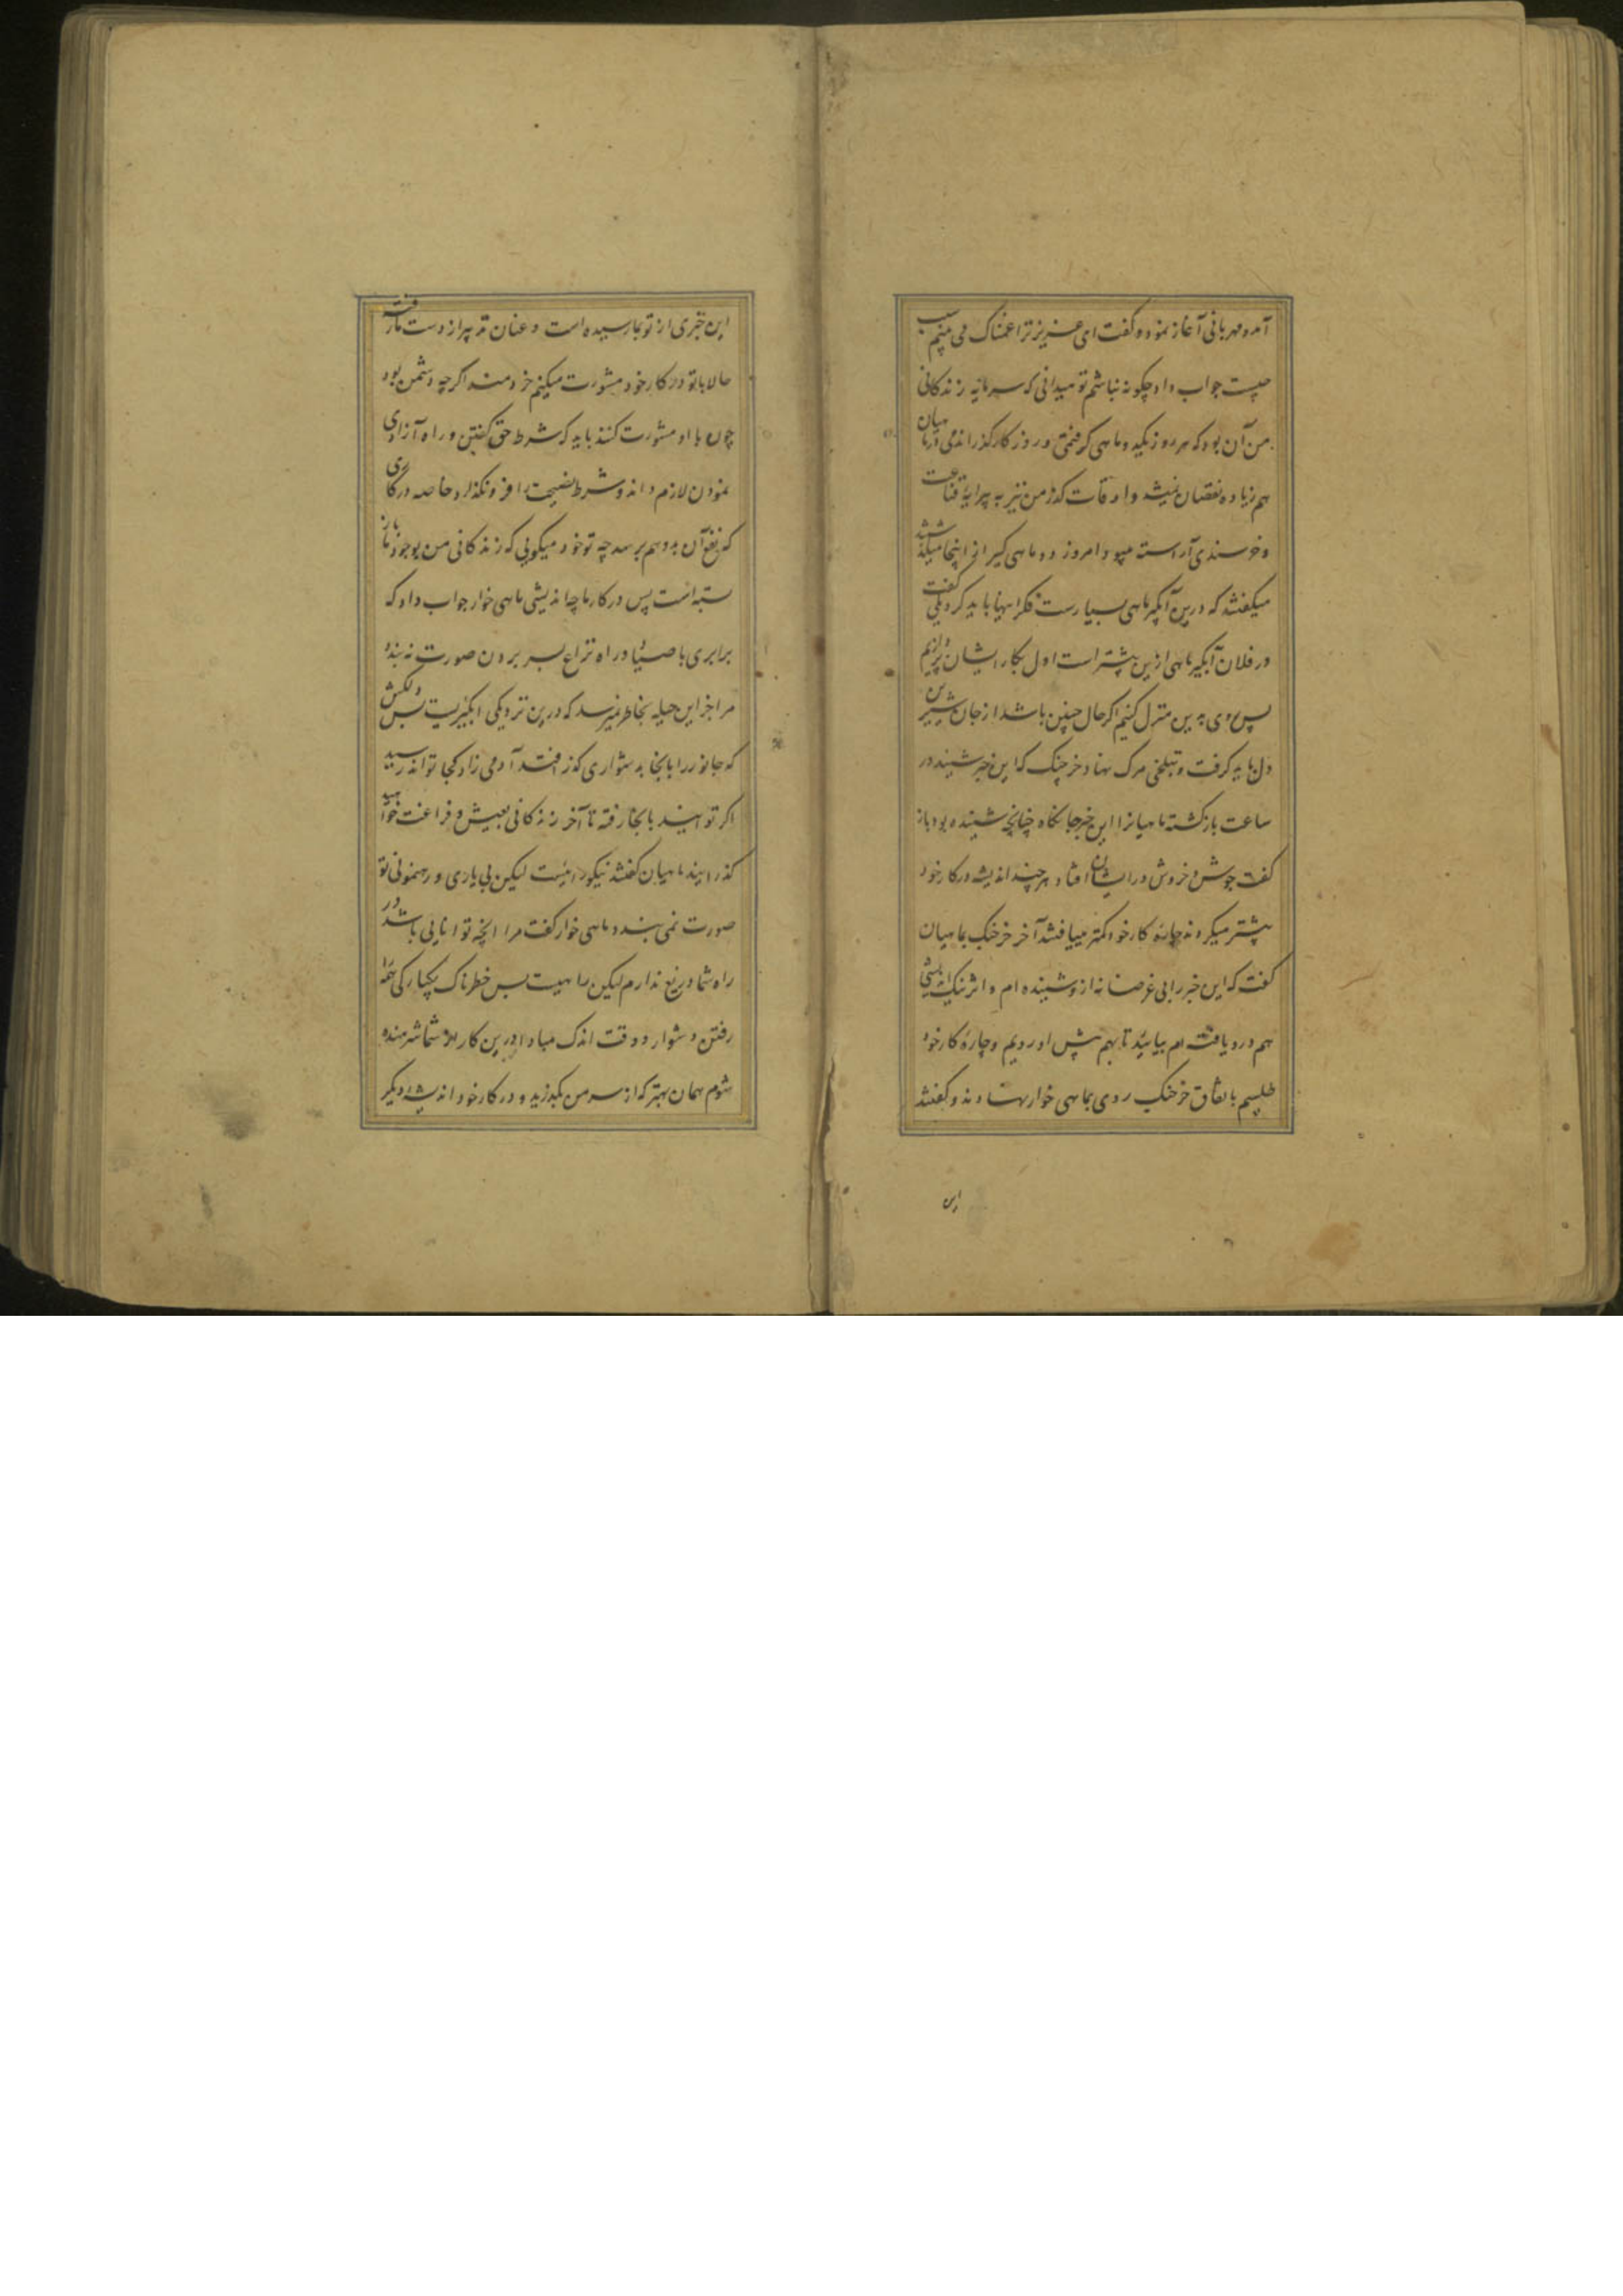 آمد و مهربانی آغاز نمود و گفت ای عزیز ترا غمناک می بینم سبب
چیست جواب داد چگونه نباشم تو میدانی که سرمایه زندگانی
من آن بود که هر روز یکید و ماهی گرفتمی و روزگار گذراندمی و درماهیان
هم زیاده نقصان نمیشد و اوقات گذر من نیز به پیرایه قناعت
و خرسندی آراسته میبود امروز دو ماهی گیر از اینجا میگذشتند
میگفتند که درین آبگیر ماهی بسیارست فکر اینها باید کرد یکی گفت
در فلان آبگیر ماهی ازین بیشتر است اول بکار ایشان پردازیم
پس روی به این منزل کنیم اگر حال چنین باشد از جان شیرین
دل باید گرفت و بتلخی مرگ نهاد خرچنگ که این خبر شنید در
ساعت بازگشته ماهیانرا این خبر جانکاه چنانچه شنیده بود باز
گفت جوش و خروش در ایشان افتاد هر چند اندیشه در کار خود
بیشتر میکردند چاره کار خود کمتر مییافتند آخر خرچنگ بماهیان
گفت که این خبر را بی غرضانه ازو شنیده ام و اثر نیک اندیشی
هم درو یافته ام بیائید تا بهم پیش او رویم و چاره کار خود
طلبیم باتفاق خرچنگ روی بماهی خوار نهادند و گفتند
این
این خبری از تو بما رسیده است و عنان تدبیر از دست ما رفت
حالا با تو در کار خود مشورت میکنیم خردمند اگر چه دشمن بود
چون با او مشورت کنند باید که شرط حق گفتن و راه آزادی
نمودن لازم داند و شرط نصیحت را فرو نگذارد خاصه در کاری
که نفع آن بدو هم برسد چه تو خود میگویی که زندگانی من بوجود ما باز
بسته است پس در کار ما چه اندیشی ماهی خوار جواب داد که
برابری با صیاد و راه نزاع بسر بردن صورت نه بندد
مرا جز این حیله بخاطر نمیرسد که درین نزدیکی آبگیریست بس دلکش
که جانور را بانجا بدشواری گذر افتد آدمی زاد کجا تواند رسید
اگر توانید بانجا رفته تا آخر زندگانی بعیش و فراغت خواهید
گذرانید ماهیان گفتند نیکو رائیست لیکن بی یاری و رهنمونی تو
صورت نمی بندد ماهی خوار گفت مرا انچه توانایی باشد در
راه شما دریغ ندارم لیکن راهیست بس خطرناک یکبارگی همه را
رفتن دشوار و وقت اندک مبادا درین کار از شما شرمنده
شوم همان بهتر که از سر من بگذرید و در کار خود اندیشه دیگر